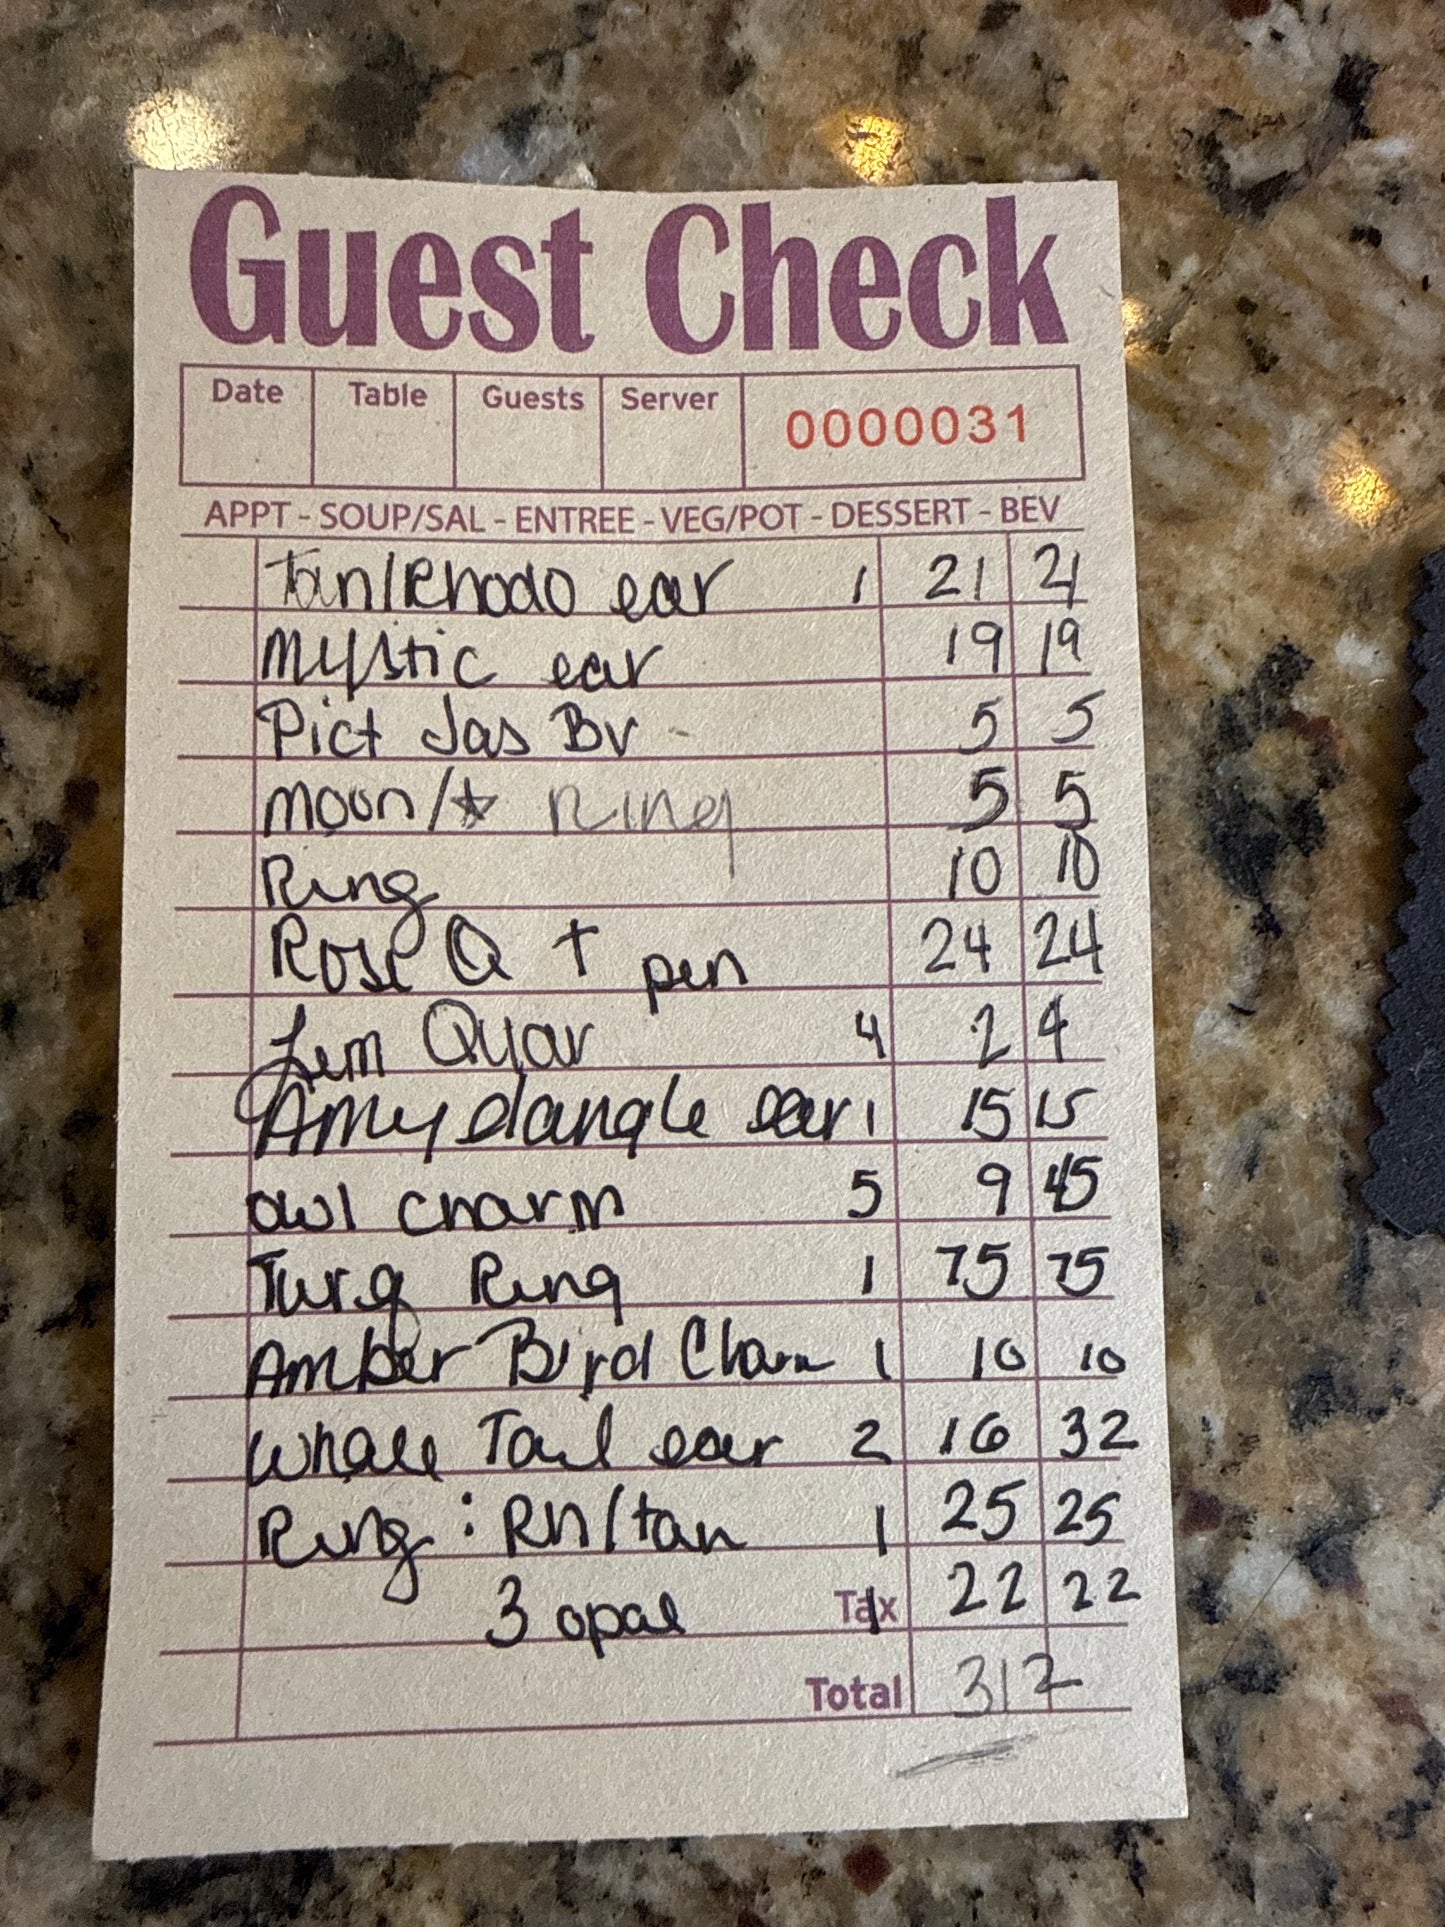 Guest Check
Date Table Guests Server 0000031
APPT - SOUP/SAL - ENTREE - VEG/POT - DESSERT - BEV
Tan/Rhodo ear 1 21 21
Mystic ear 19 19
Pict Jas Bv 5 5
moon/☆ Ring 5 5
Ring 10 10
Rose Q + pen 24 24
Lem Quar 4 2 4
Amy dangle ear 1 15 15
owl charm 5 9 45
Turq Ring 1 75 75
Amber Bird Charm 1 10 10
Whale Tail ear 2 16 32
Ring: Rh/tan 1 25 25
3 opal Tax 1 22 22
Total 312